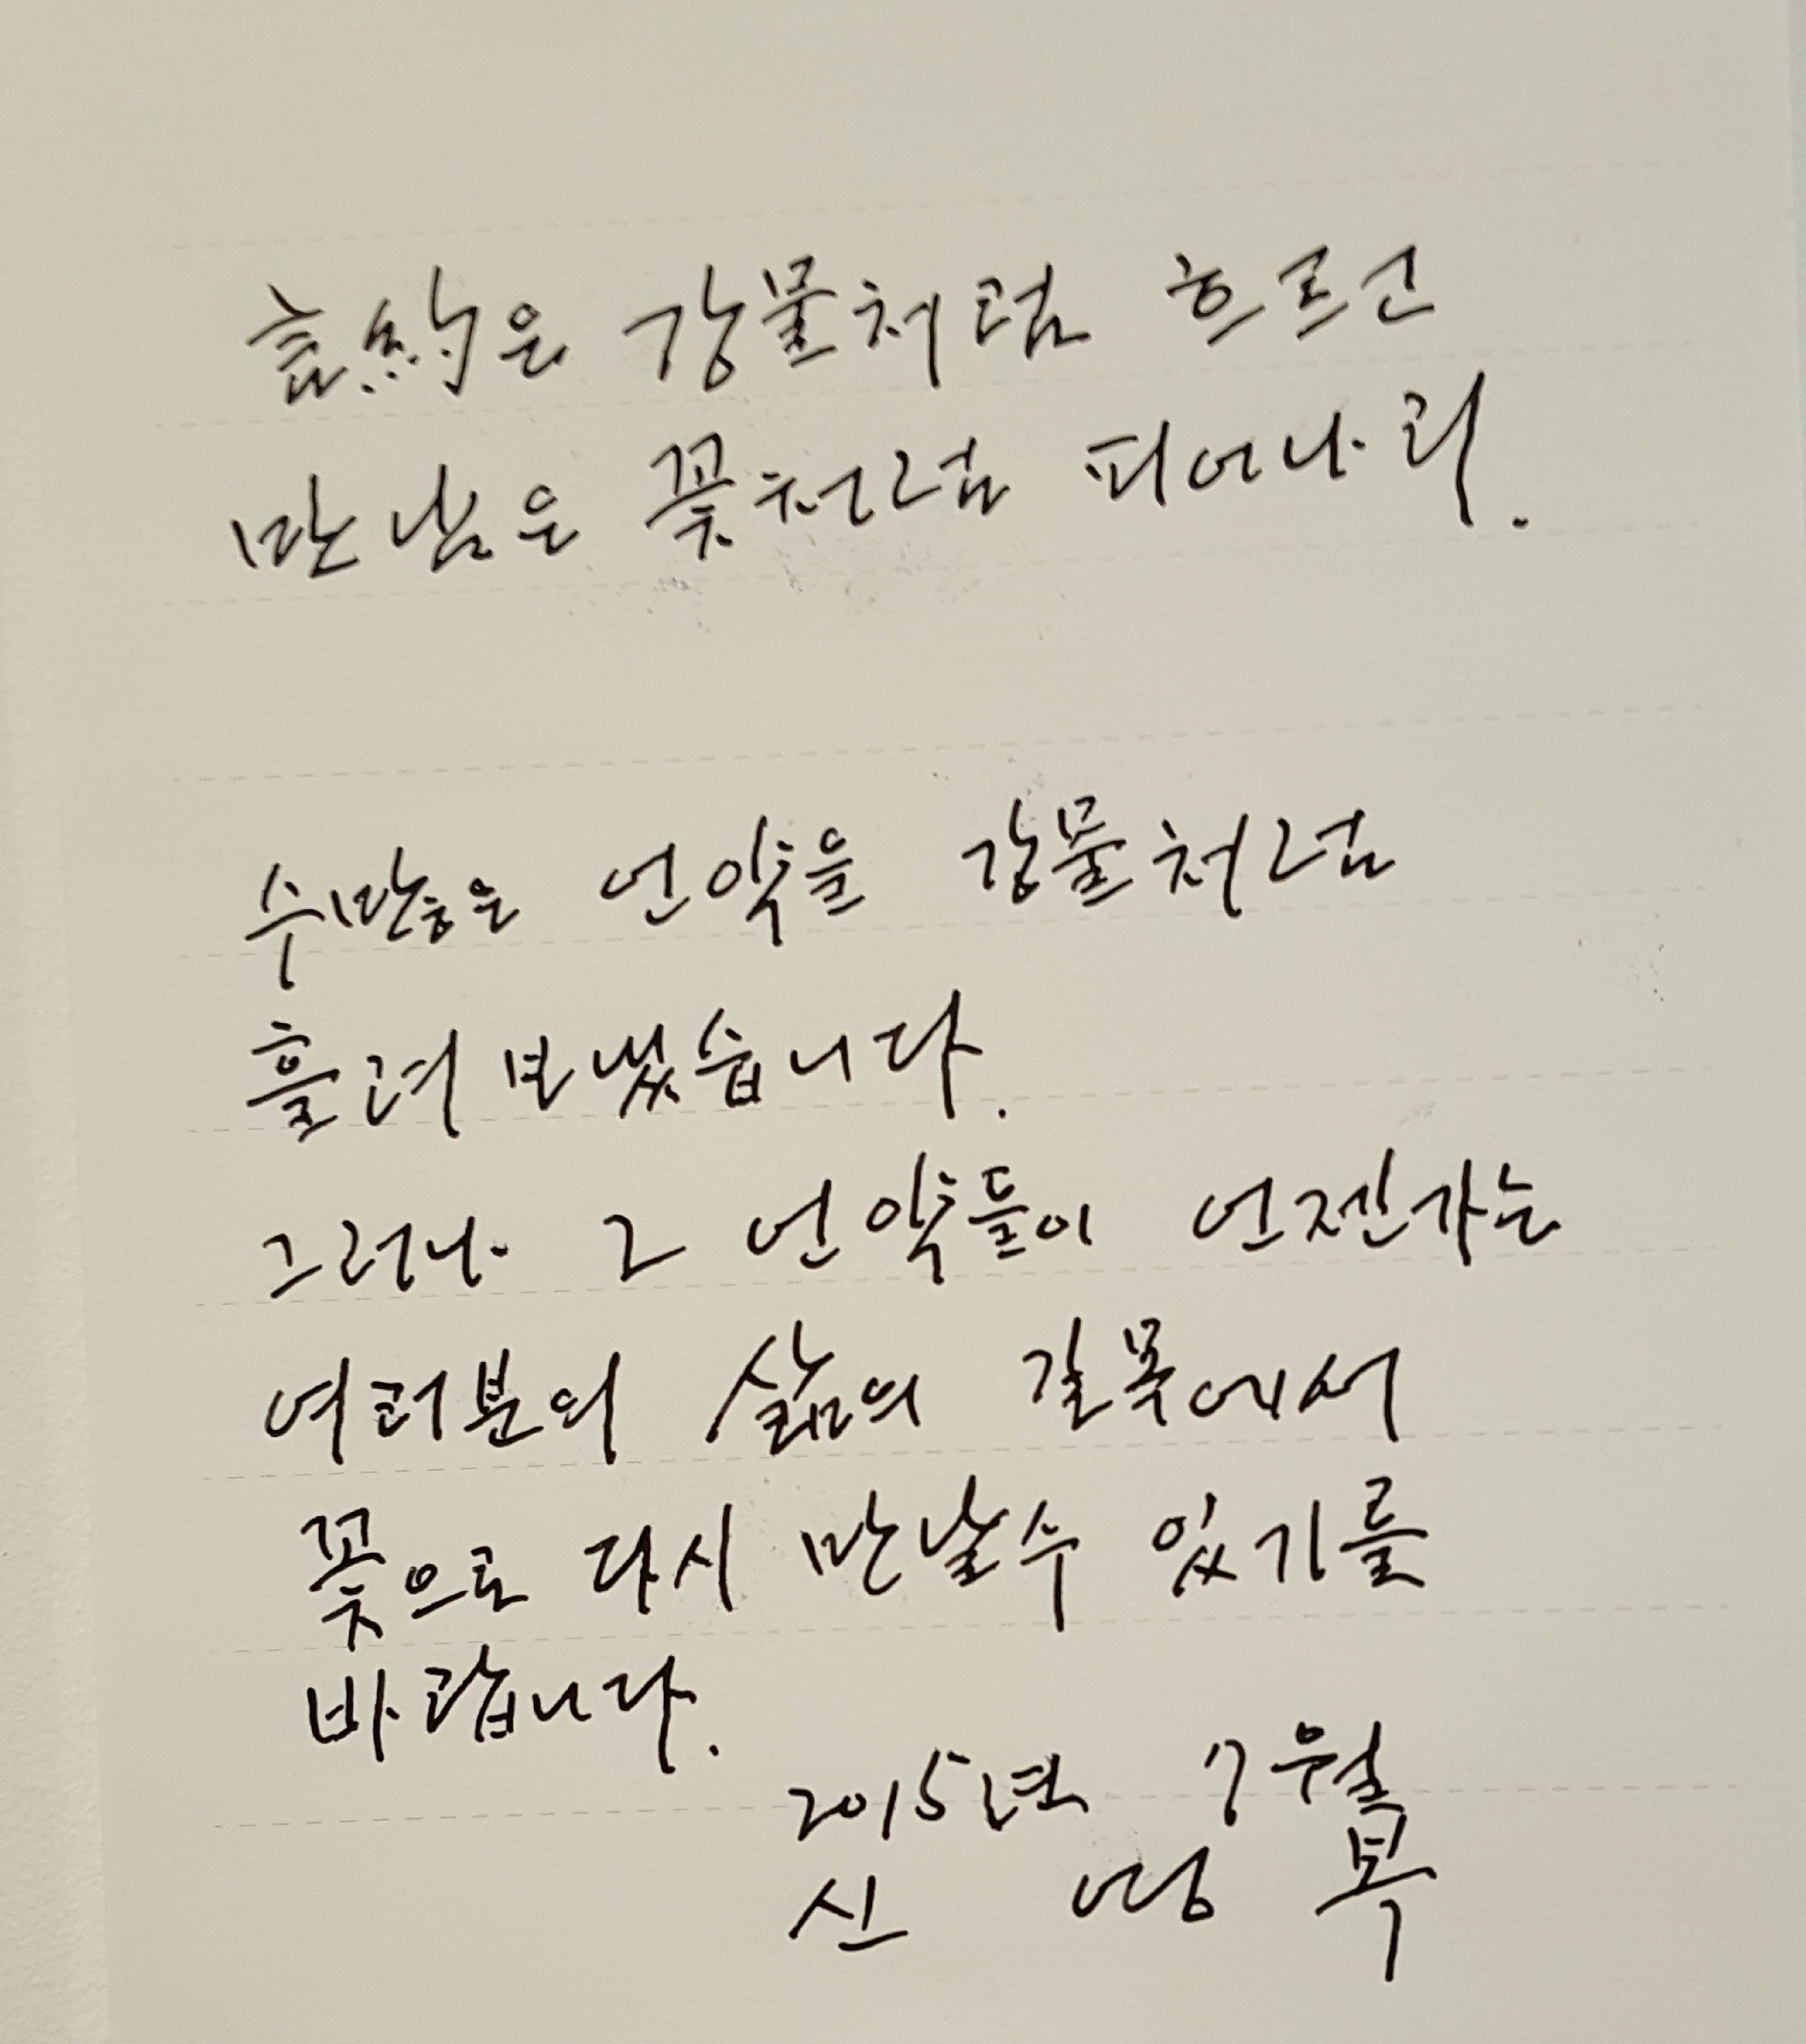 言約은 강물처럼 흐르고
만남은 꽃처럼 피어나리.
수많은 언약을 강물처럼
흘려 보냈습니다.
그러나 그 언약들이 언젠가는
여러분의 삶의 길목에서
꽃으로 다시 만날수 있기를
바랍니다.
2015년 7월
신영복